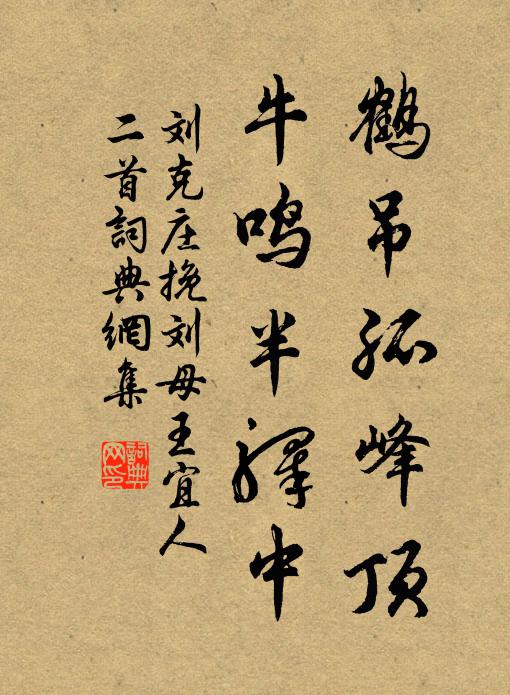 鹤吊孤峰顶
牛鸣半驿中
刘克庄挽刘母王宜人
二首詞典網集
詞典
网印